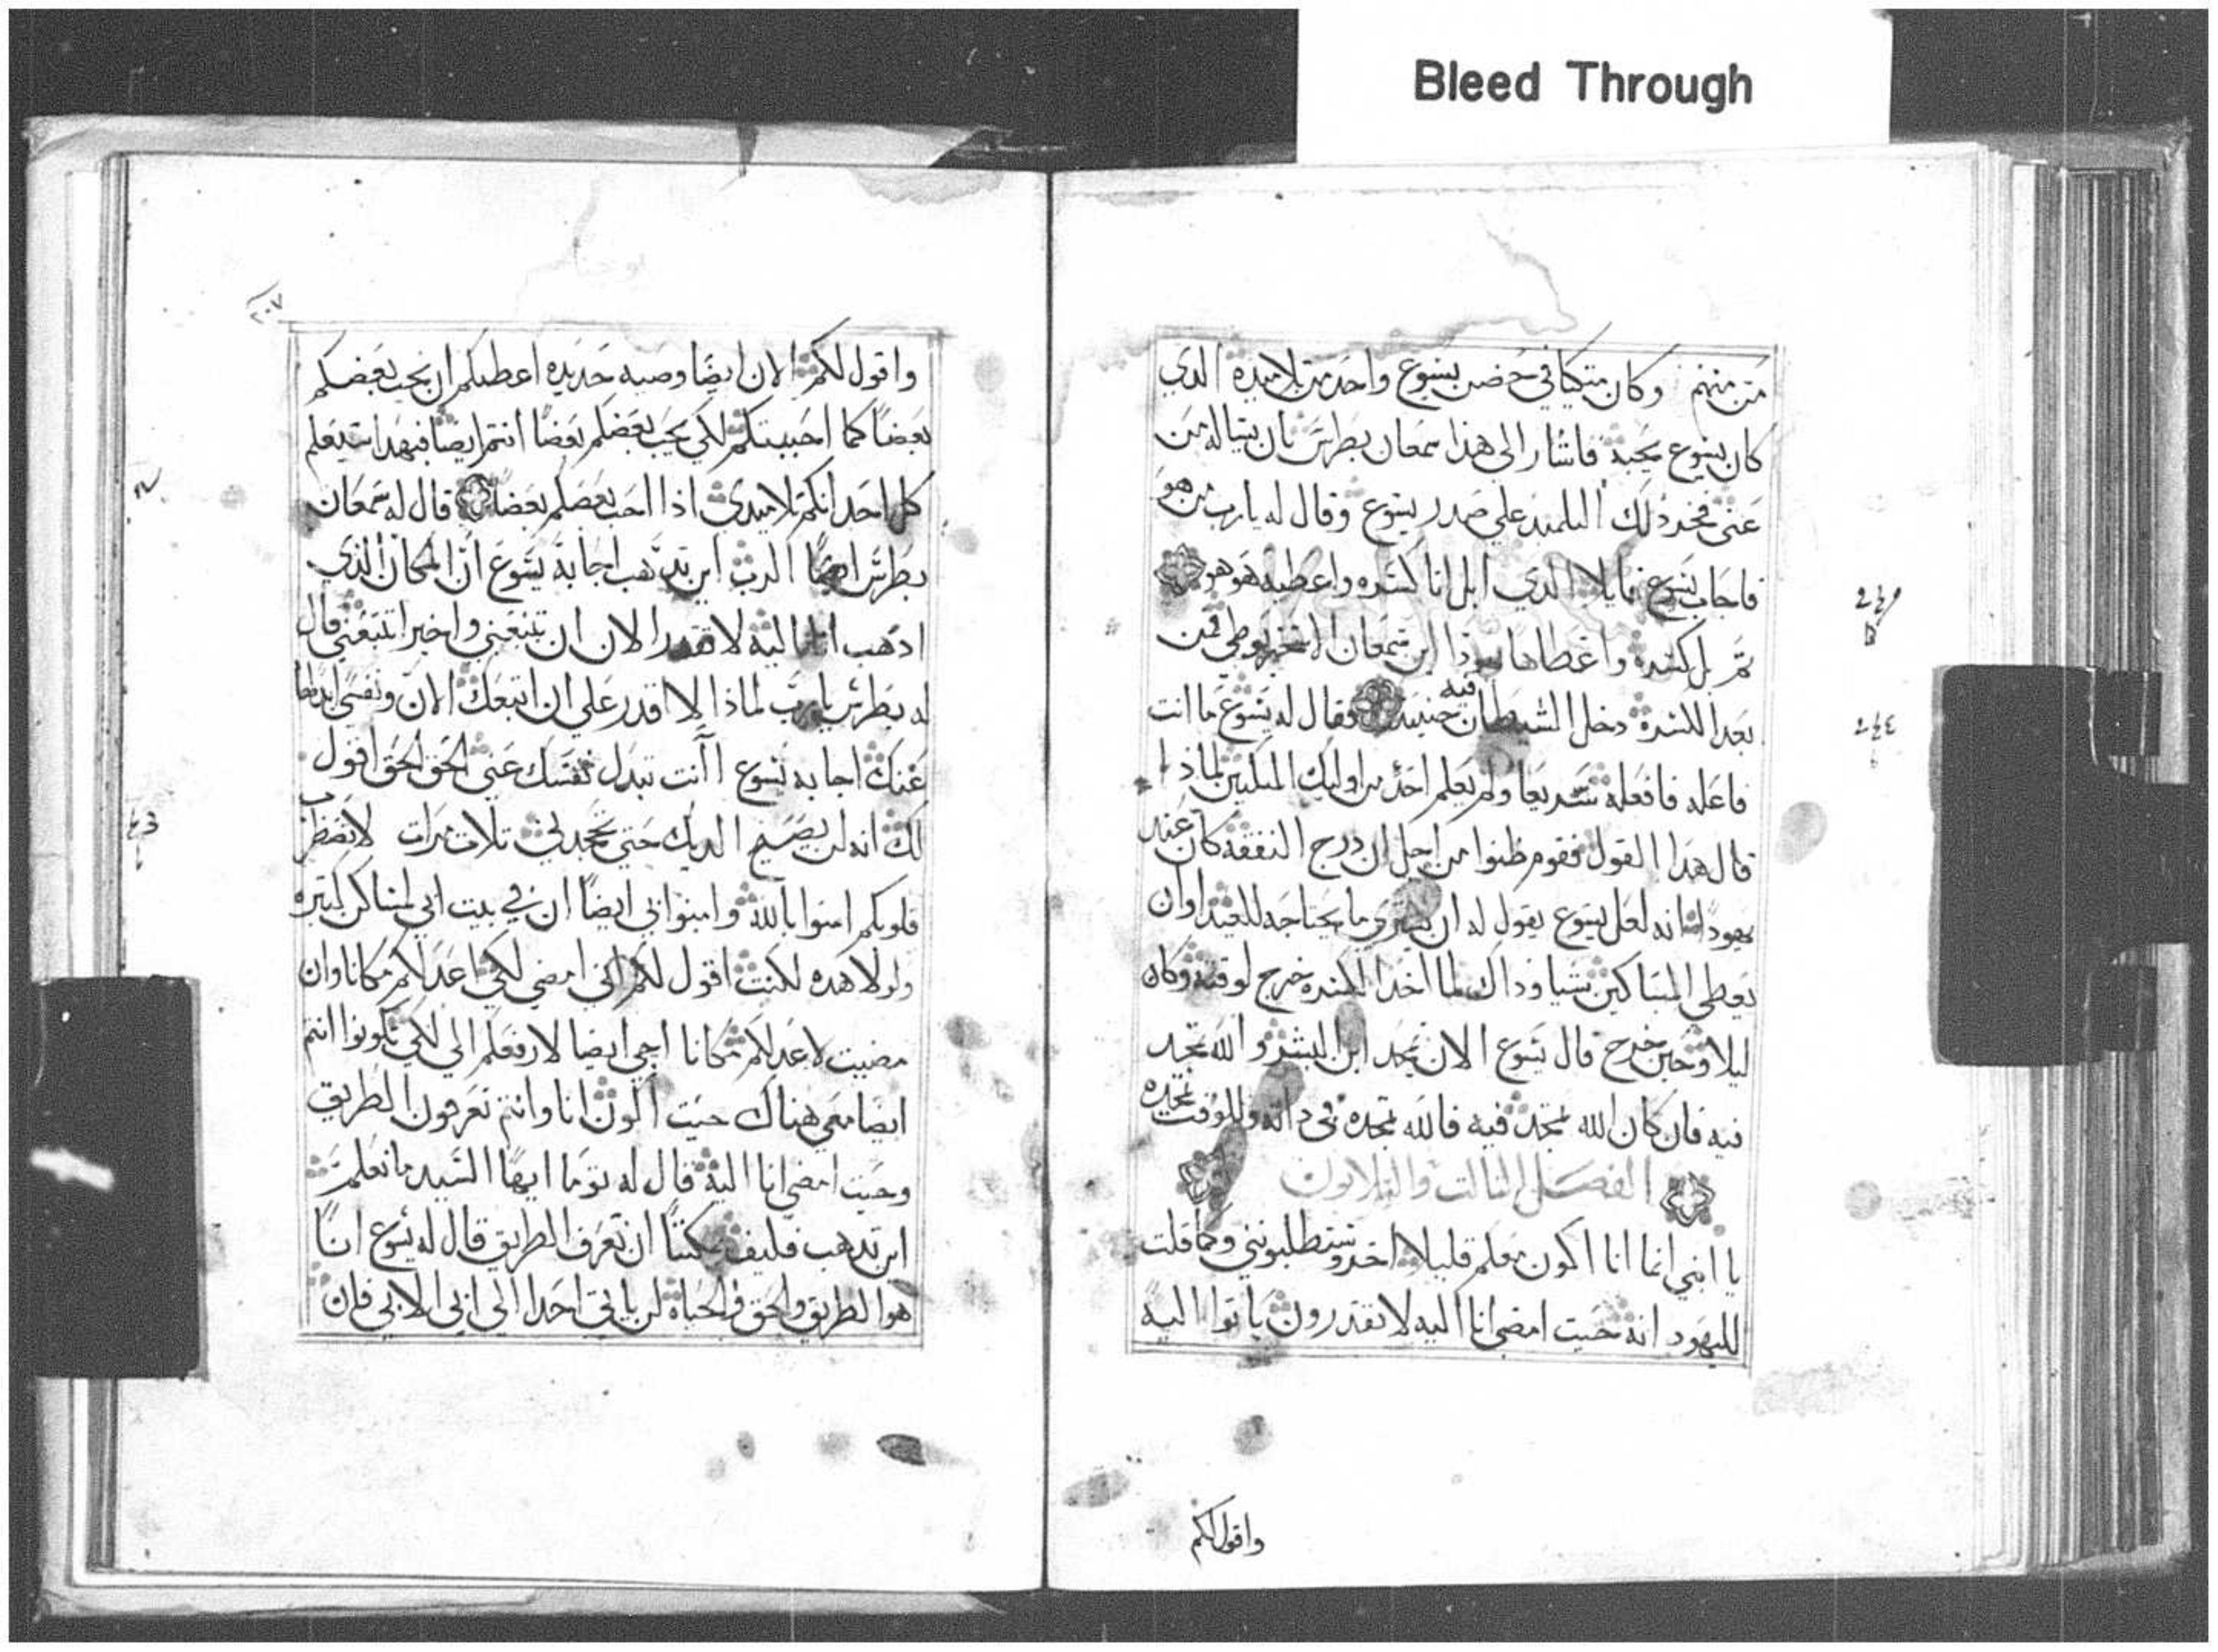 Bleed Through
من منهم وكان متكيا في حضن يسوع واحد من تلاميذه الدي
كان يسوع يحبه فاشار الى هذا سمعان بطرس بان يساله من
عنى فخر ذلك التلميد على صدر يسوع وقال له يارب من هو
فاجاب يسوع قايلا الدي ابل انا كسره واعطيه هو هو
ثم بل كسره واعطاها يهوذا ابن سمعان الاسخريوطي فمن
بعد الكسره دخل الشيطان فيه حينيد فقال له يسوع ما انت
فاعله فافعله سريعا ولم يعلم احد من اوليك المتكيين لماذا
قال هدا القول فقوم ظنوا من اجل ان درج النفقه كان عند
يهودا انه لعل يسوع يقول له ان يشتري ما يحتاجه للعيد او ان
يعطي المساكين شيا وداك لما اخد الكسره خرج لوقته وكان
ليلا وحين خرج قال يسوع الان تمجد ابن البشر والله تمجد
فيه فان كان الله تمجد فيه فالله يمجده في داته وللوقت يمجده
الفصل الثالت والتلاتون
يا ابني انما انا اكون معكم قليلا اخر وستطلبونني وكما قلت
لليهود انه حيت امضي انا اليه لا تقدرون ياتوا اليه
واقول لكم
واقول لكم الان ايضا وصيه جديده اعطيكم ان يحب بعضكم
بعضا كما احببتكم لكي يحب بعضكم بعضا انتم ايضا فبهدا سيعلم
كل احد انكم تلاميدي اذا احب بعضكم بعضا قال له سمعان
بطرس ايها الرب اين تدهب اجابه يسوع ان المكان الذي
ادهب انا اليه لا تقدر الان ان تتبعني واخيرا تتبعني قال
له بطرس يارب لماذا لا اقدر على ان اتبعك الان ونفسي ابدلها
عنك اجابه يسوع اانت تبدل نفسك عني الحق الحق اقول
لك انه لن يصيح الديك حتى تجحدني تلات مرات لا تضطرب
قلوبكم امنوا بالله وامنوا بي ايضا ان في بيت ابي لمساكن كتيره
ولولا هده لكنت اقول لكم اني امضي لكي اعد لكم مكانا وان
مضيت لاعد لكم مكانا اجي ايضا لارفعكم الي لكي تكونوا انتم
ايضا معي هناك حيت اكون انا وانتم تعرفون الطريق
وحيت امضي انا اليه قال له توما ايها السيد ما نعلم
اين تدهب فكيف يمكننا ان نعرف الطريق قال له يسوع انا
هو الطريق والحق والحياه لن ياتي احدا الى ابي الا بي فان